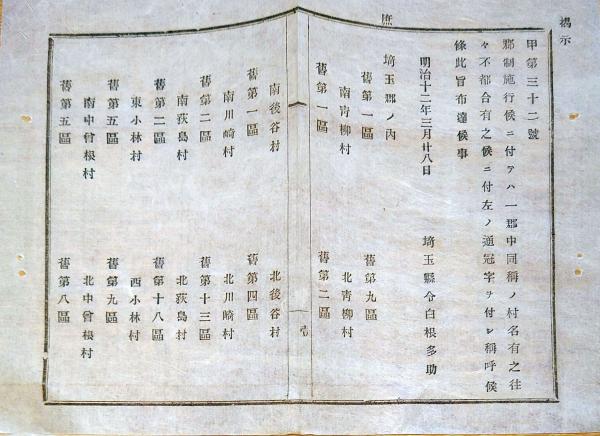 揭示
甲第三十二號
郡制施行候ニ付テハ一郡中同稱ノ村名有之往
々不都合有之候ニ付左ノ通冠字ヲ付シ稱呼候
條此旨布達候事
明治十二年三月廿八日 埼玉縣令白根多助
埼玉郡ノ内
舊第一區 舊第九區
南靑柳村 北靑柳村
舊第一區 舊第二區
庶
壹
南後谷村 北後谷村
舊第一區 舊第四區
南川崎村 北川崎村
舊第二區 舊第十三區
南荻島村 北荻島村
舊第二區 舊第十八區
東小林村 西小林村
舊第五區 舊第九區
南中曾根村 北中曾根村
舊第五區 舊第八區